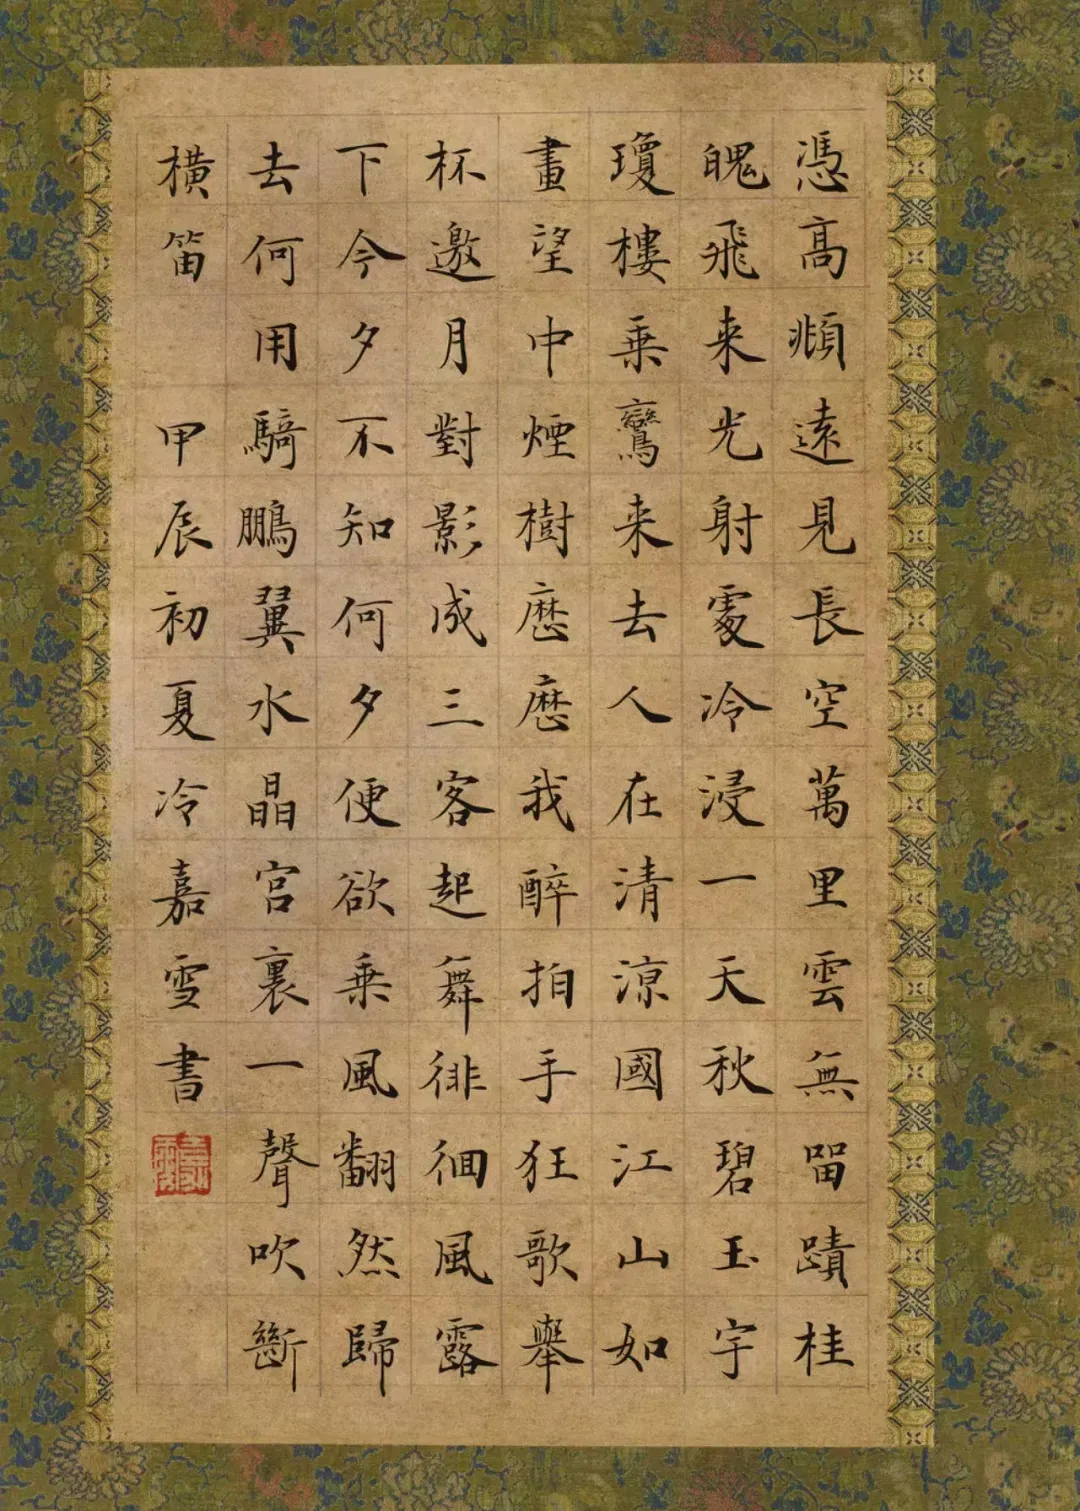 憑高頫遠見長空萬里雲無畱蹟桂
魄飛来光射處冷浸一天秋碧玉宇
瓊樓乗鸞来去人在清涼國江山如
畫望中煙樹歷歷我醉拍手狂歌舉
杯邀月對影成三客起舞徘徊風露
下今夕不知何夕便欲乗風翻然歸
去何用騎鵬翼水晶宮裏一聲吹斷
橫笛 甲辰初夏冷嘉雪書